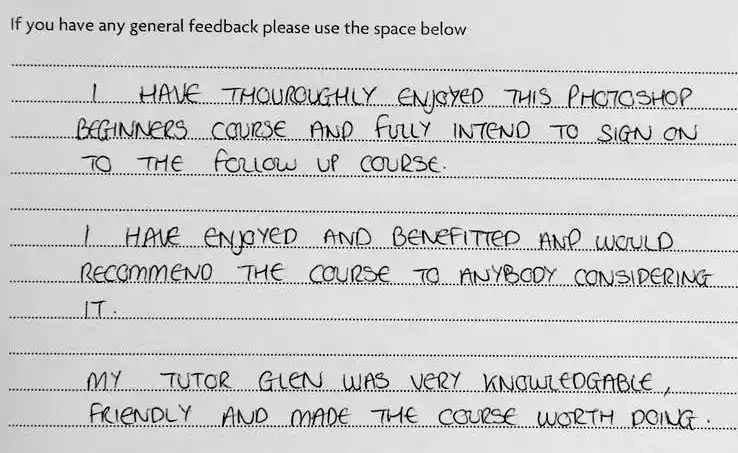 If you have any general feedback please use the space below
I HAVE THOUROUGHLY ENJOYED THIS PHOTOSHOP
BEGINNERS COURSE AND FULLY INTEND TO SIGN ON
TO THE FOLLOW UP COURSE.
I HAVE ENJOYED AND BENEFITTED AND WOULD
RECOMMEND THE COURSE TO ANYBODY CONSIDERING
IT.
MY TUTOR GLEN WAS VERY KNOWLEDGABLE,
FRIENDLY AND MADE THE COURSE WORTH DOING.